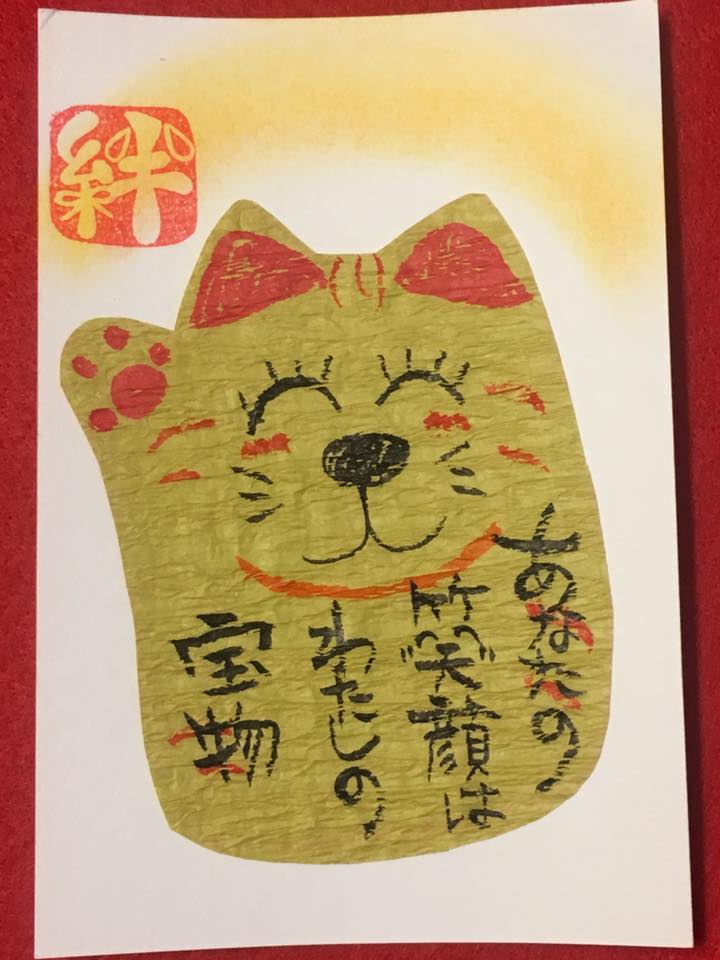 絆
あなたの
笑顔は
わたしの
宝物